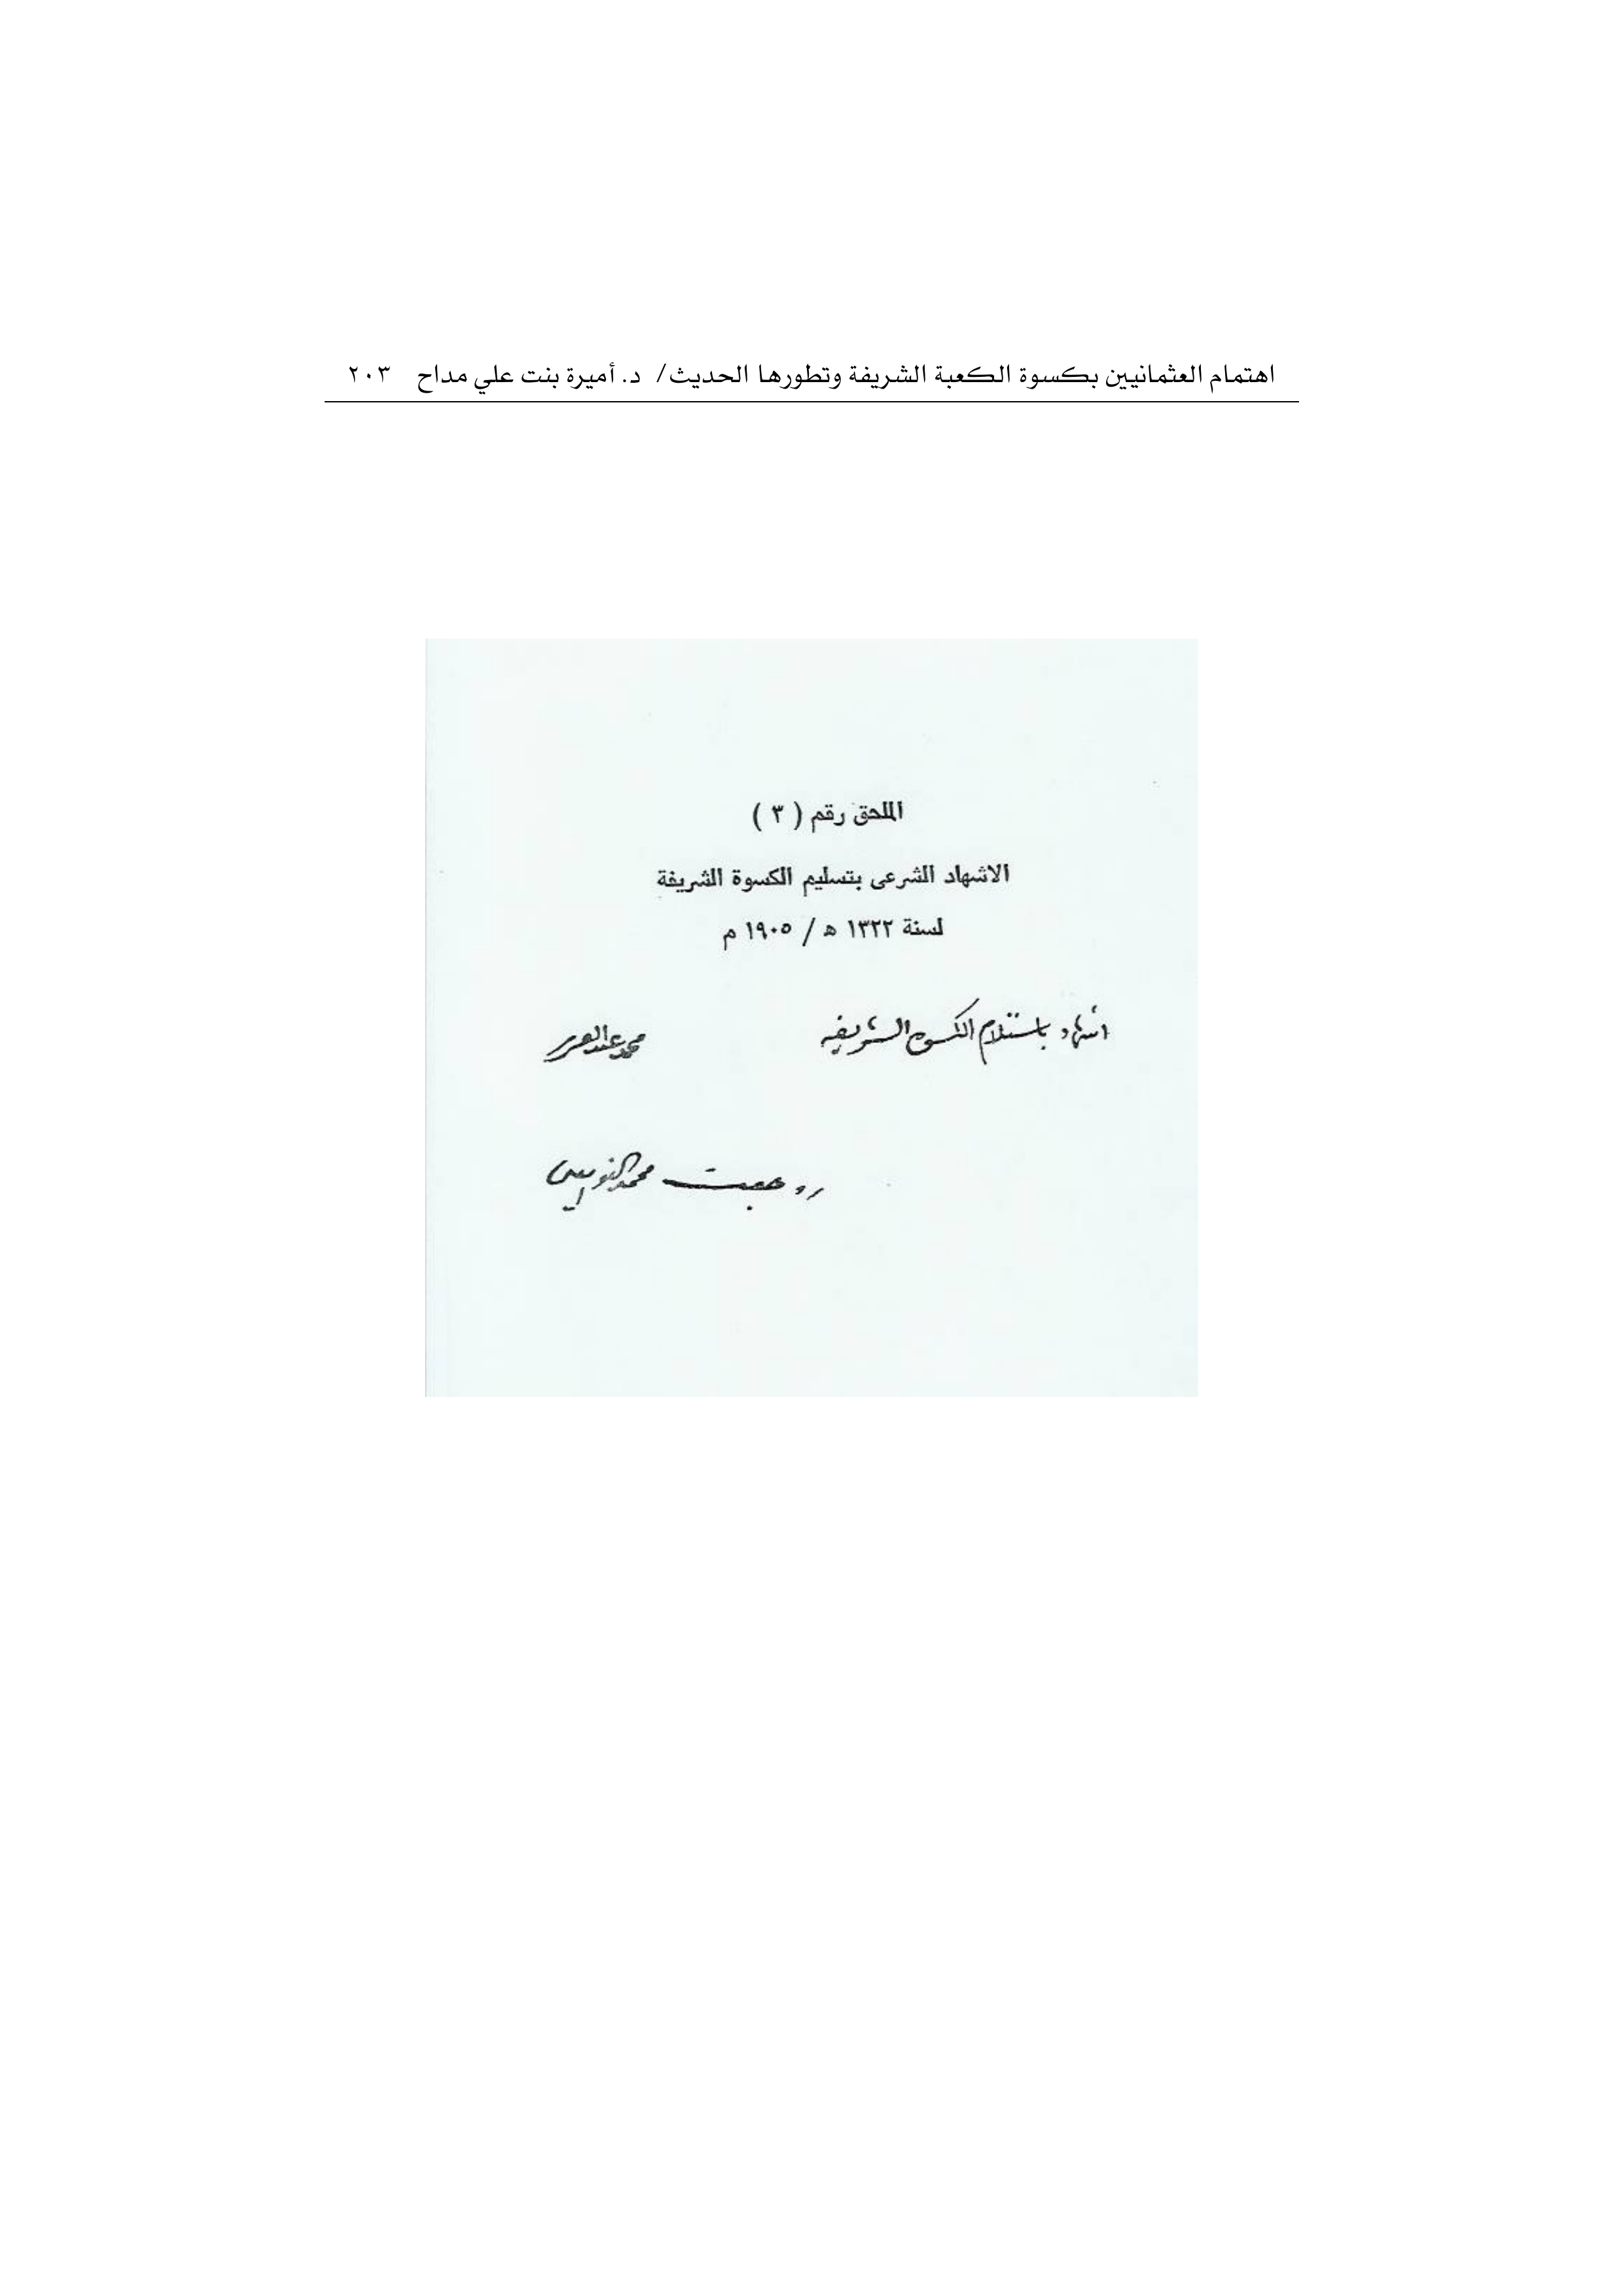 اهتمام العثمانيين بكسوة الكعبة الشريفة وتطورها الحديث/ د. أميرة بنت علي مداح ٢٠٣
الملحق رقم ( ٣ )
الاشهاد الشرعى بتسليم الكسوة الشريفة
لسنة ١٣٢٢ ه / ١٩٠٥ م
اشهاد باستلام الكسوة الشريفه
محمد
محمد